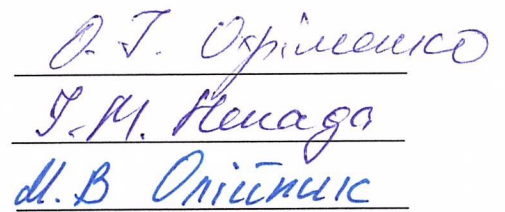 О. Г. Охріменко
І. М. Ненада
М. В Олійник